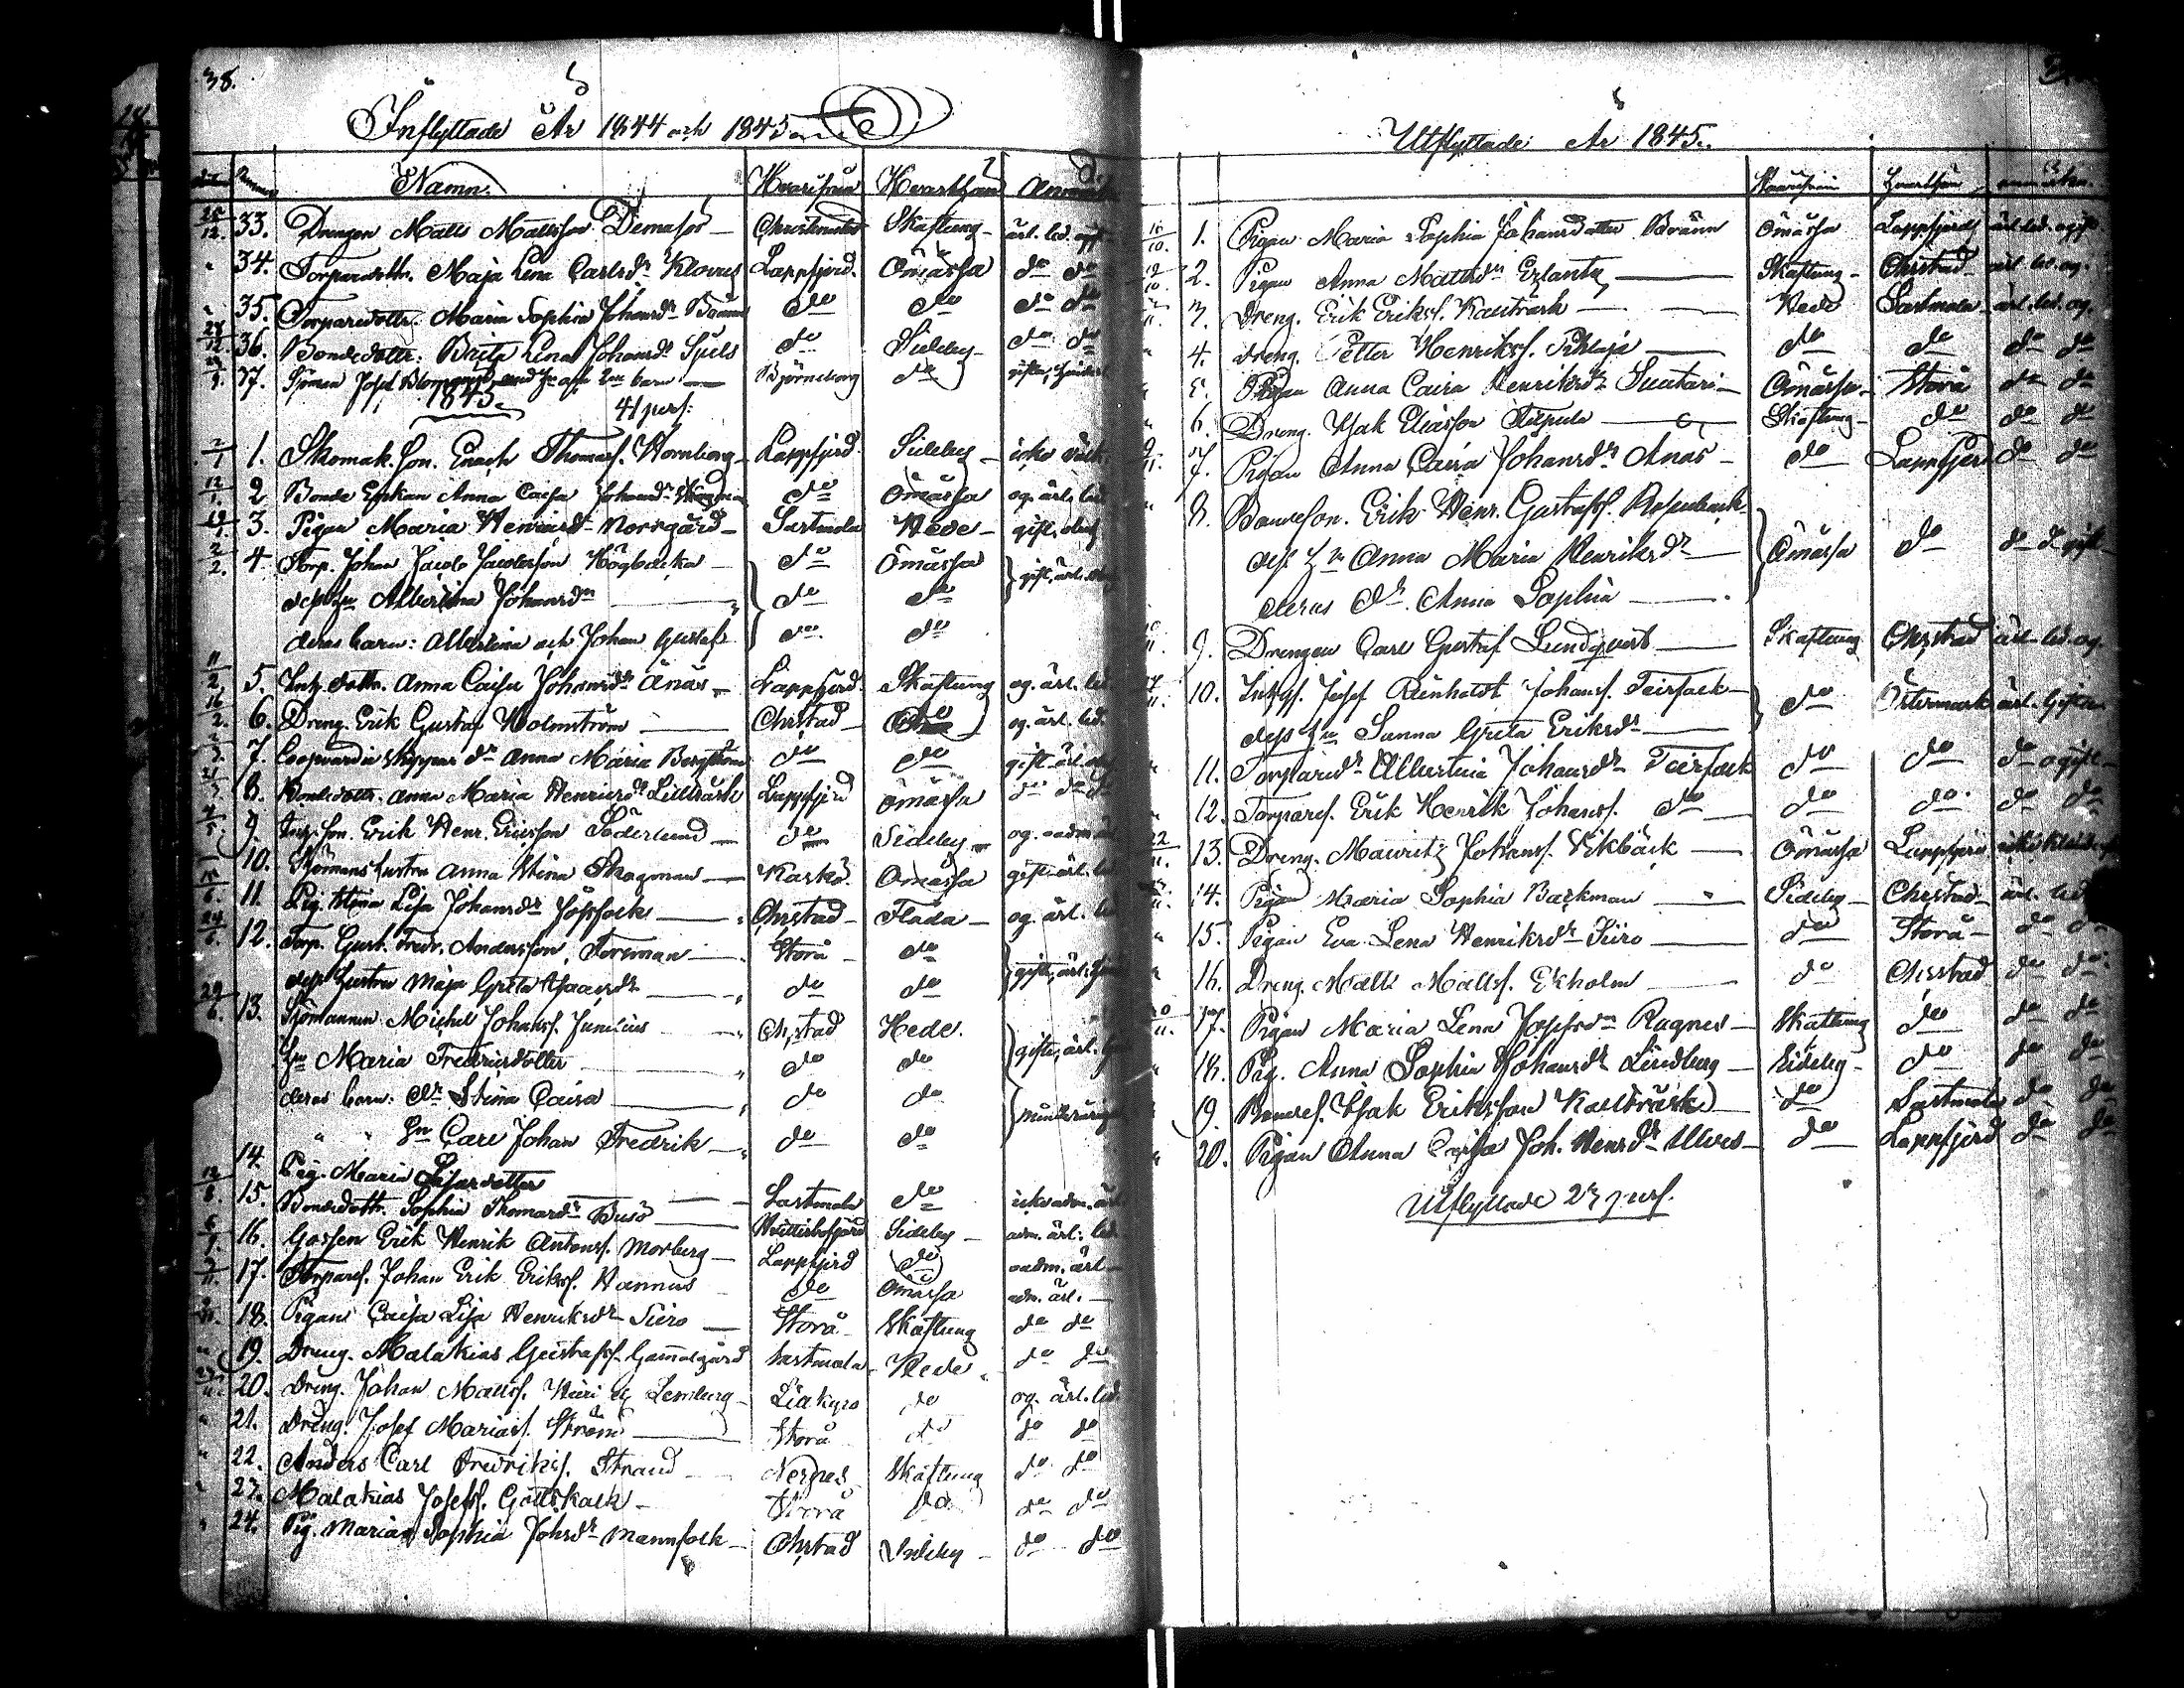 38.
Inflyttade År 1844 och 1845
Namn. Hvarifrån Hvarthän
25/12. 33. Drengen Matts Mattsson Skaftung ärl. led.
" 34. Torparedottr. Maja Lena Carlsdr Klovus Lappfjerd. Ömåssa do do
" 35. Torparedottr. Maria Sophia Johansdr Bränn do do do do
36. Bondedottr. Brita Lena Johansdr Spels do Sideby do do
37. Sjöman Josef Björneborg do
1845. 41 pers.
2/1 1. Skomak. Son. Enoch Thomass. Hornborg Lappfjerd. Sideby icke
12/1. 2 Bonde Enkan Anna Caisa Johansdr do Ömåssa og. ärl. led
3. Pigan Maria Henriksdr Norrgård Sastmola Hede gift
2/2. 4 Torp. Johan Jacob Jacobsson Högbacka do Ömåssa gift, ärl.
dess hu Albertina Johansdr do do
deras barn: Albertina och Johan Gustaf do do
11/2 5. Inh. dottr. Anna Caisa Johansdr Änäs Lappfjerd. Skaftung og. ärl. led
16/2. 6. Dreng Erik Gustaf Holmström Chrstad og. ärl. led.
7. Coopvardie Skeppare dr Anna Maria Bergström do do gift ärl.
8. Bondedottr. Anna Maria Henricsdr Lillträsk Lappfjerd Ömåssa do do
9. Inh. son. Erik Henr. Ericsson Söderlund do Sideby
10. Sjömans hustru Anna Stina Skogman Kaskö. Ömåssa gift ärl.
11. Pig. Stina Lisa Johansdr Chrstad Flada og. ärl.
24/6. 12. Torp. Gust. Fredr. Andersson, Forsman Storå do gifte, ärl.
dess hustru Maja Greta Isaacsdr do do
29/6. 13. Sjömannen Michel Johanss. Junelius Chrstad Hede. gifte, ärl.
hu Maria Fredricsdotter do do
deras barn. dr Stina Caisa do do
" " Sn Carl Johan Fredrik do do
14. Pig. Maria
15. Bondedottr. Sophia Thomasdr Busö Sastmola do
16. Gossen Erik Henrik Antonss. Morberg Sideby adm. ärl. led.
17. Torpares. Johan Erik Erikss. Hannus Lappfjerd do
do Ömåssa adm. ärl.
18. Pigan Caisa Lisa Henriksdr Siiro Storå Skaftung do do
" 19. Dreng. Malakias Gustafss. Gammalgård Sastmola Hede do do
20. Dreng. Johan Mattss. Lemberg do og. ärl. led.
" 21. Dreng. Josef Mariass. Ström Storå do do do
" 22. Anders Carl Fredrikss. Strand Nerpes Skaftung do do
" 23. Malakias Josefss. Gottskalk Storå do do do
" 24. Pig. Maria Sophia Johsdr Mannfolk Chrstad Sideby do do
Utflyttade År 1845.
Hvarifrån Hvarthän
10/10. 1. Pigan Maria Sophia Johansdotter Bränn Ömåssa Lappfjerd ärl. led. ogift
2. Pigan Anna Mattsdr Erlantz Skaftung Chrstad ärl. led. og.
3. Dreng. Erik Erikss. Kallträsk Hede Sastmola ärl. led. og.
" 4. Dreng. Petter Henrikss. Pihlaja do do do do
" 5. Pigan Anna Caisa Henriksdr Ömåssa Storå do do
" 6. Dreng. Isak Eliasson Skaftung do do do
7. Pigan Anna Caisa Johansdr Änäs do Lappfjerd do do
" 8. Bondeson. Erik Henr. Gustafss. Rosenback
dess hu Anna Maria Henriksdr Ömåssa do do do gift
deras dr. Anna Sophia
9. Drengen Carl Gustaf Lundqvist Skaftung Chrstad ärl. led. og.
10. Inh. Josef Reinholdt Johanss. Teirfolk do Östermark ärl. gifta
dess hu Sanna Greta Eriksdr
" 11. Torparedr Albertina Johansdr Teirfolk do do do ogift
" 12. Torpares. Erik Henrik Johanss. do do do. do do
22/11. 13. Dreng. Mauritz Johanss. Vikbäck Ömåssa Lappfjerd
14. Pigan Maria Sophia Backman Sideby Chrstad ärl. led
" 15. Pigan Eva Lena Henriksdr Siiro do Storå do
" 16. Dreng. Matts Mattss. Ekholm do Chrstad do do
17. Pigan Maria Lena Josefsdr Ragnes Skaftung do do do
" 18. Pig. Anna Sophia Johansdr Lindberg Sideby do do do
" 19. Bondes. Isak Eriksson Kallträsk do Sastmola do do
" 20. Pigan Anna Caisa Joh. Henrsdr Ulves do Lappfjerd do do
Utflyttade 23 pers.